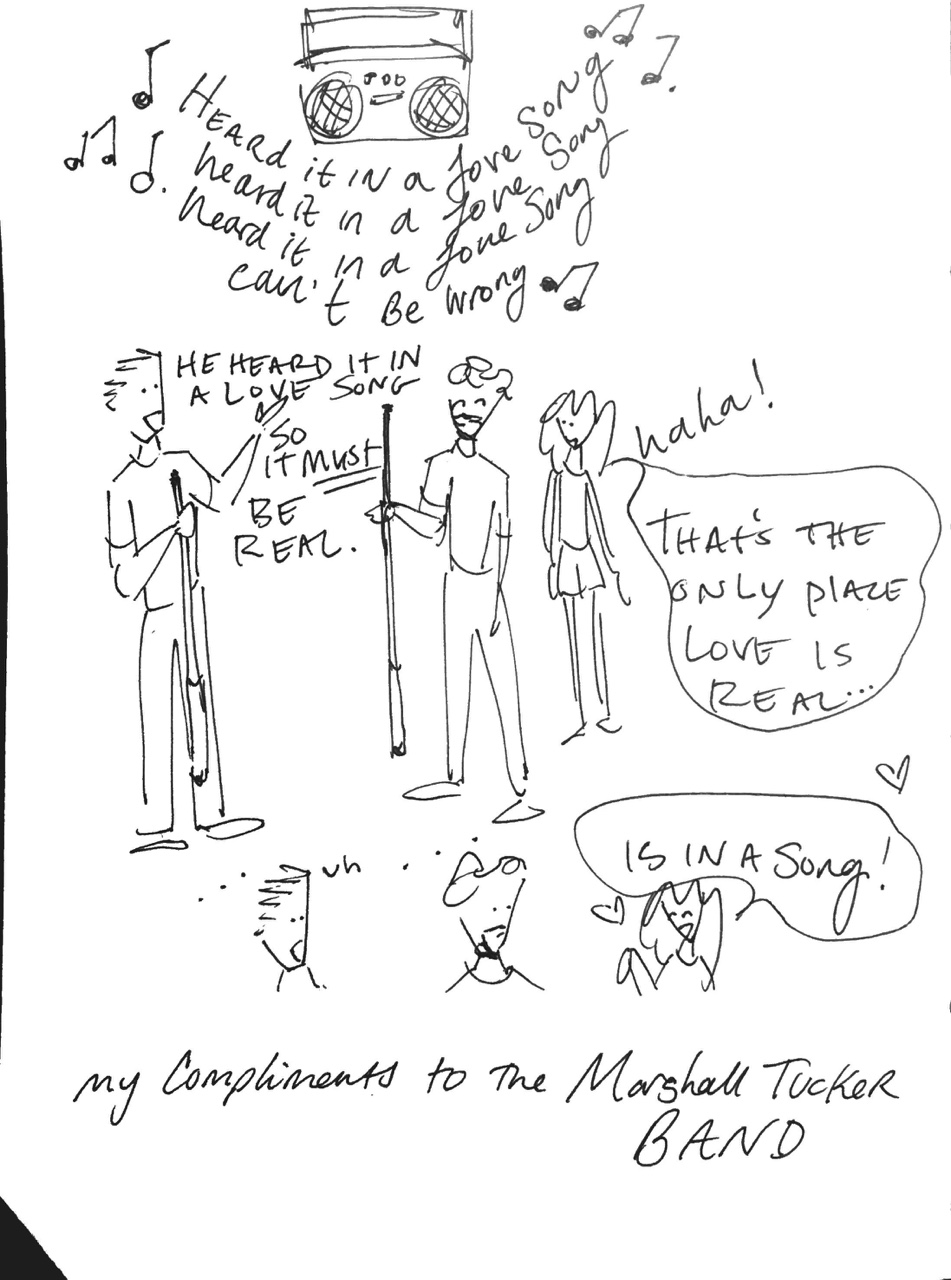 HEARD it IN a love Song
heard it in a love Song
heard it in a love Song
can't Be wrong
HE HEARD IT IN
A LOVE SONG
SO
IT MUST
BE
REAL.
haha!
THAT'S THE
ONLY PLACE
LOVE IS
REAL...
uh
IS IN A Song!
my Compliments to the Marshall TUCKER
BAND